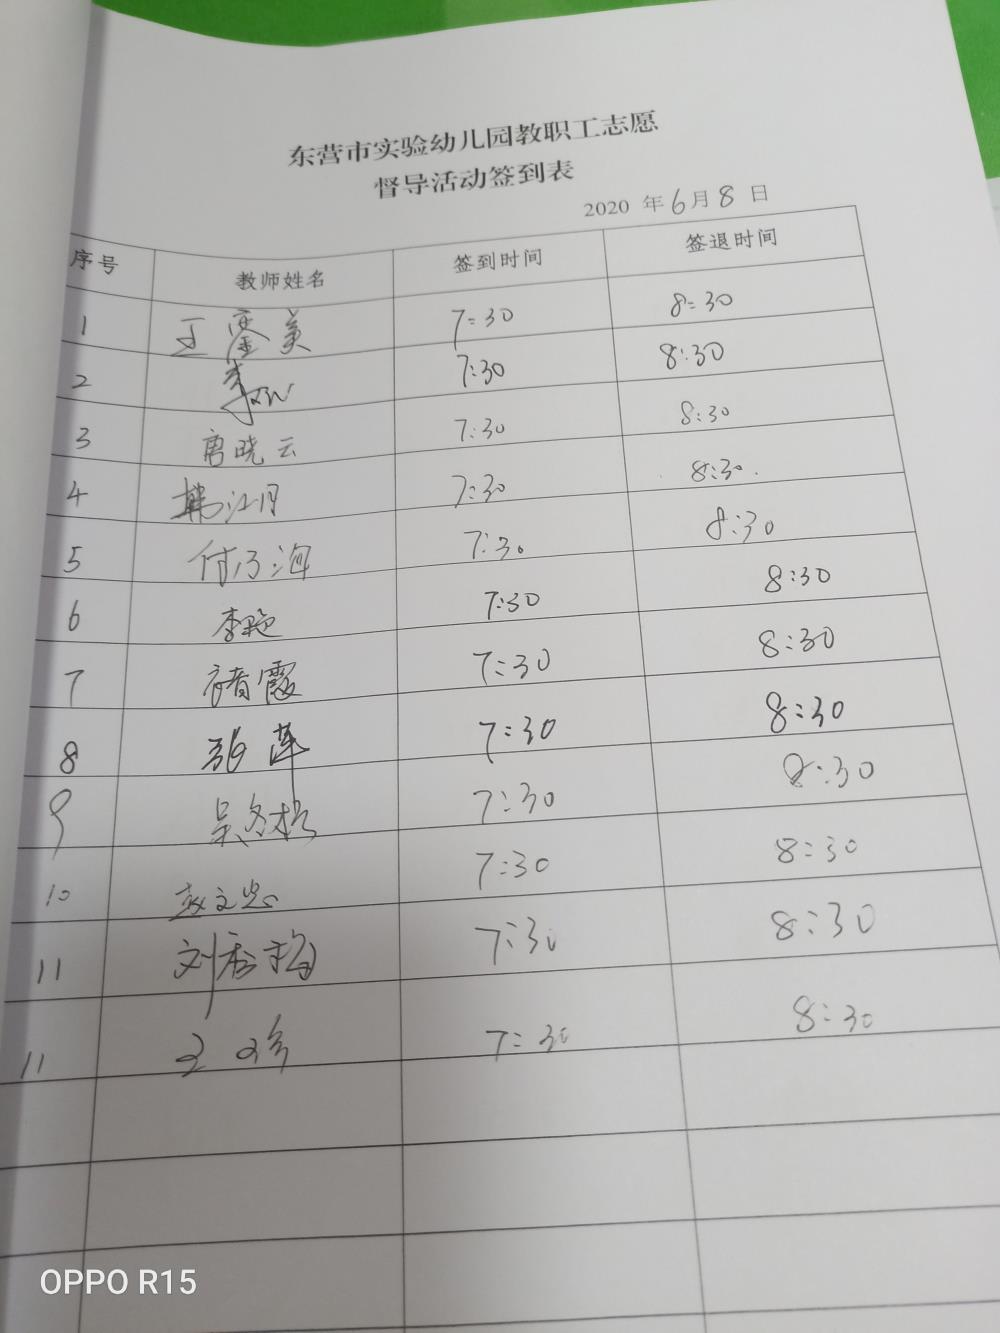 东营市实验幼儿园教职工志愿
督导活动签到表
2020 年 6 月 8 日
序号 教师姓名 签到时间 签退时间
1 王 美 7:30 8:30
2 李 7:30 8:30
3 唐晓云 7:30 8:30
4 韩江月 7:30 8:30
5 付 海 7:30 8:30
6 李艳 7:30 8:30
7 霞 7:30 8:30
8 张莲 7:30 8:30
9 吴冬梅 7:30 8:30
10 赵文 7:30 8:30
11 刘秀梅 7:30 8:30
11 王 7:30 8:30
OPPO R15